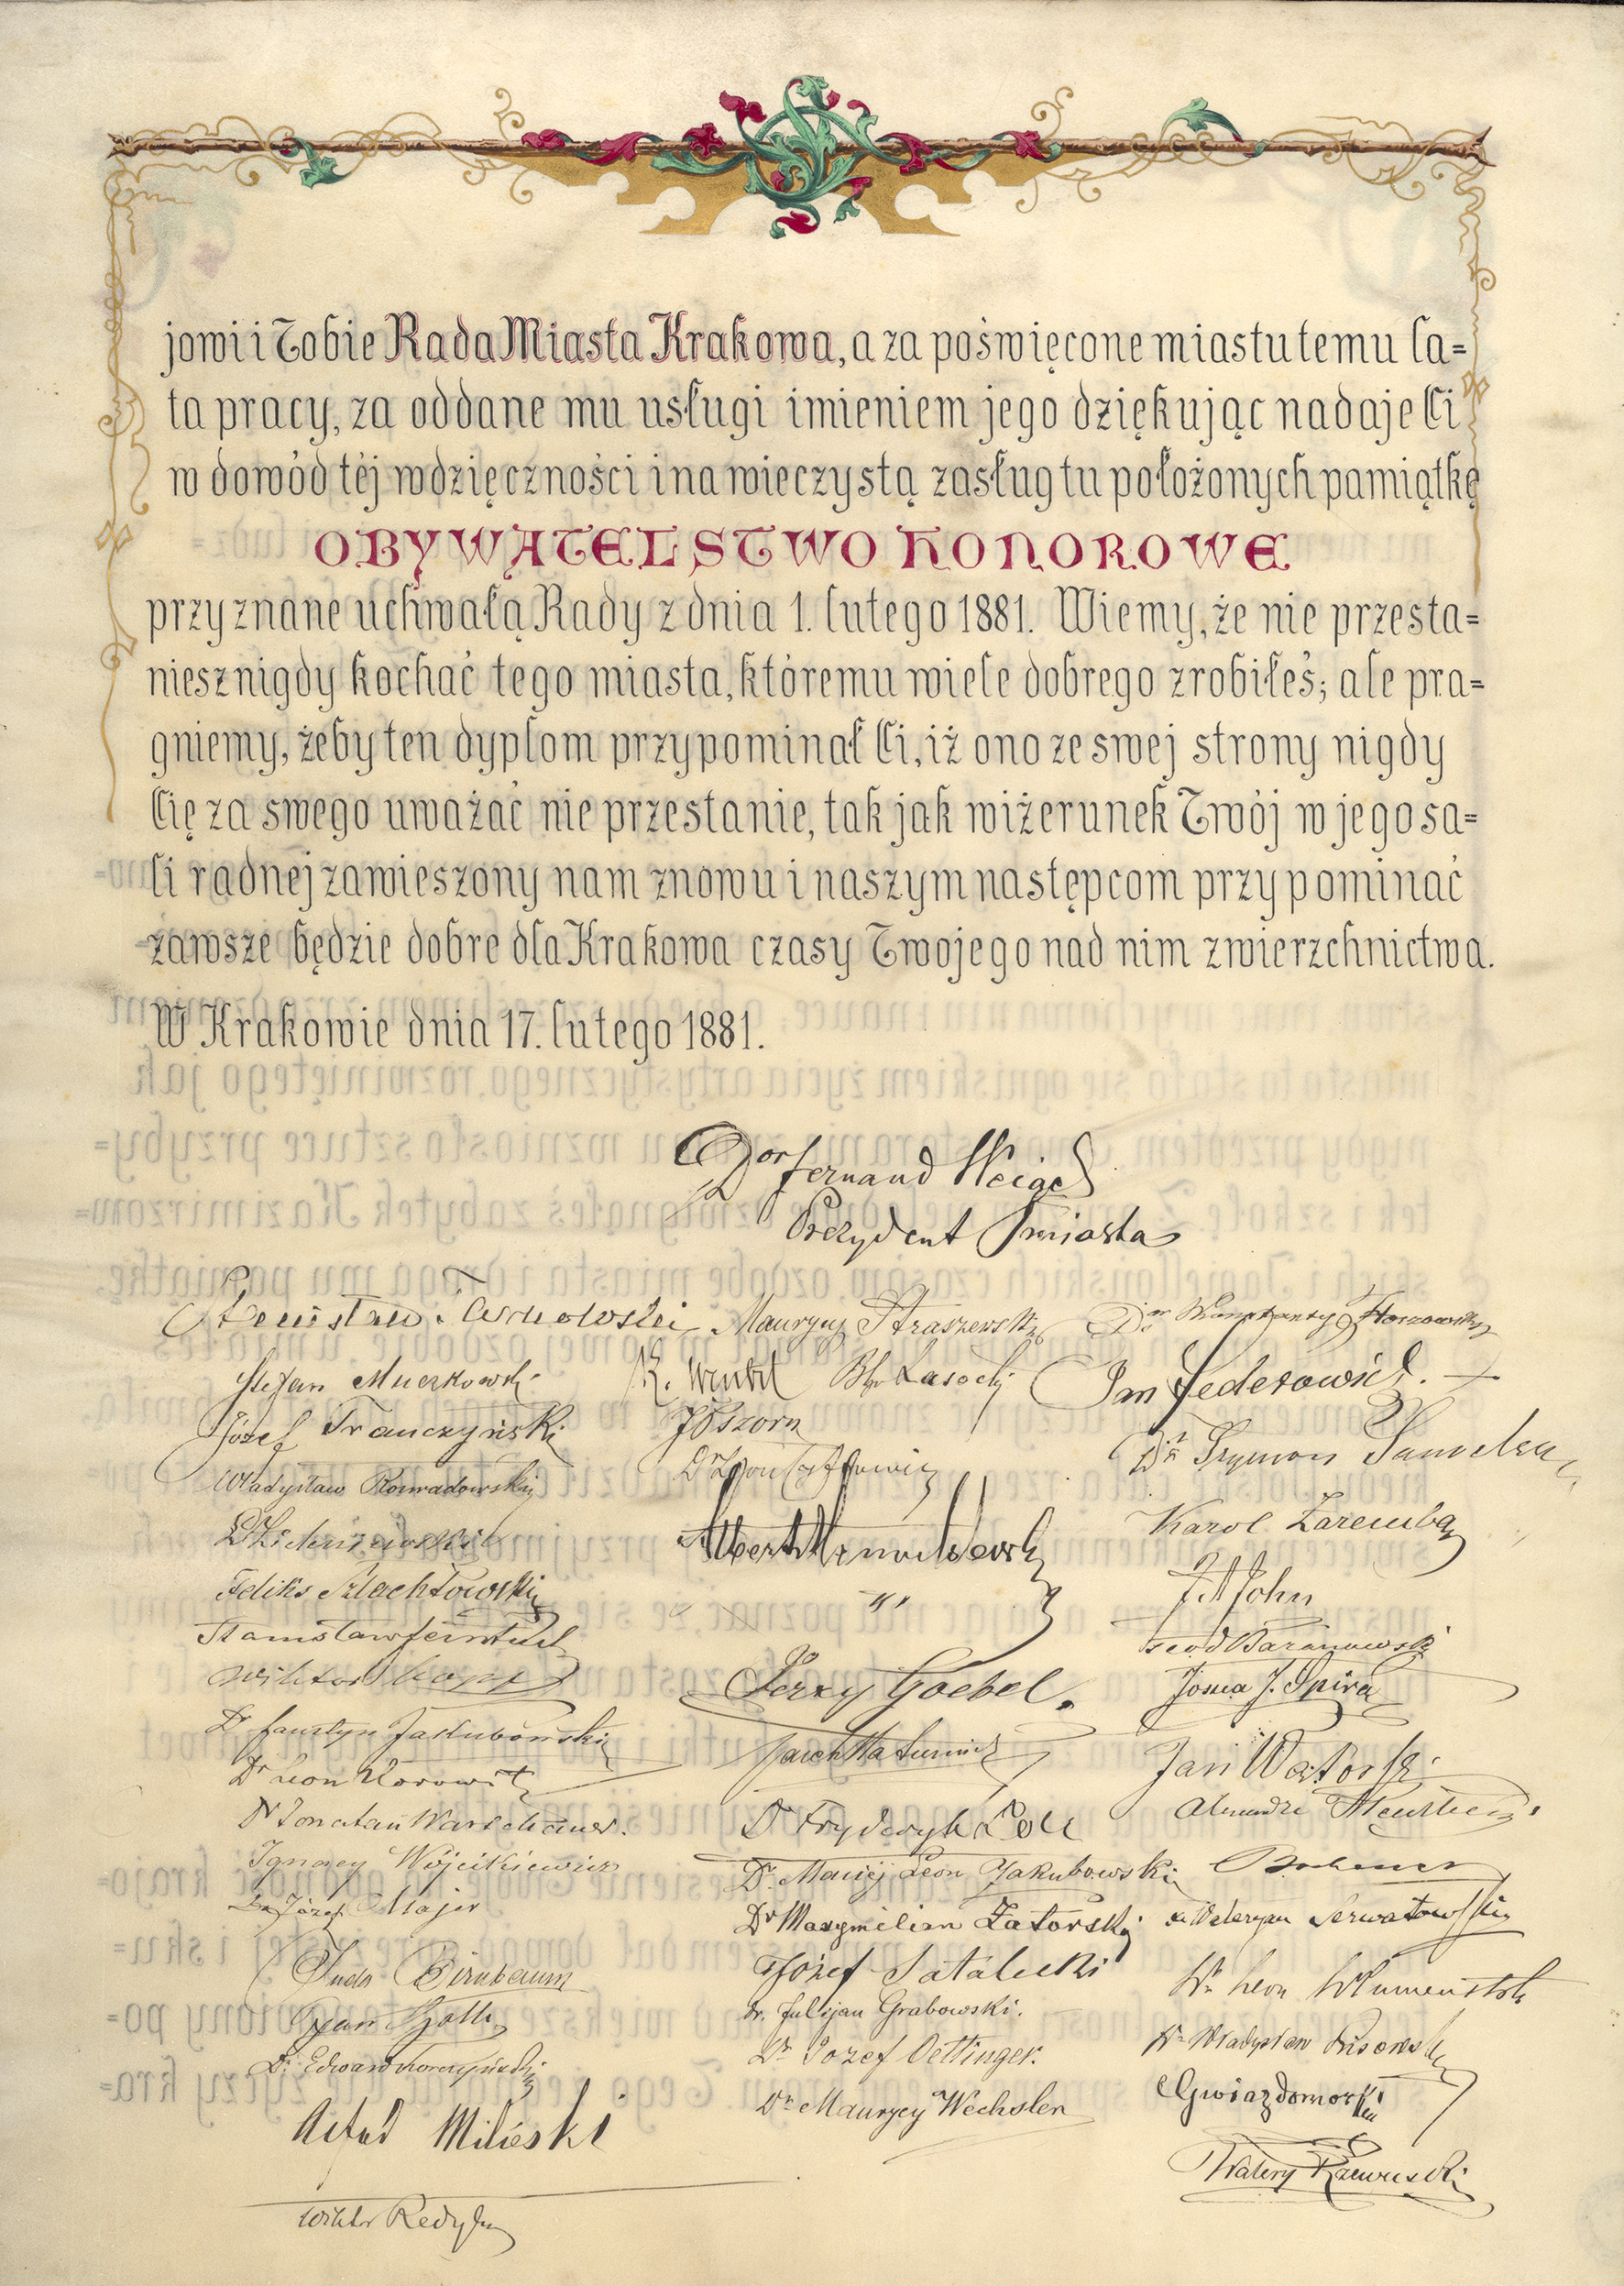 jowi i Tobie Rada Miasta Krakowa, a za poświęcone miastu temu la=
ta pracy, za oddane mu usługi imieniem jego dziękując nadaje Ci
w dowód téj wdzięczności i na wieczystą zasług tu położonych pamiątkę
OBYWATELSTWO HONOROWE
przyznane uchwałą Rady z dnia 1. lutego 1881. Wiemy, że nie przesta=
niesz nigdy kochać tego miasta, któremu wiele dobrego zrobiłeś; ale pra=
gniemy, żeby ten dyplom przypominał Ci, iż ono ze swej strony nigdy
Cię za swego uważać nie przestanie, tak jak wiżerunek Twój w jego sa=
li radnej zawieszony nam znowu i naszym następcom przypominać
zawsze będzie dobre dla Krakowa czasy Twojego nad nim zwierzchnictwa.
W Krakowie dnia 17. lutego 1881.
Dor Fernand Weigel
Prezydent miasta
Maurycy Straszewski
Stefan Muczkowski
Jan Federowicz.
Józef Franczyński
Dr Szymon Samelson
Władysław Konradowski
Karol Zaremba
Feliks Szlachtowski
Albert Mendelsburg
J A John
Stanisław Feintuch
Teod Baranowski
Wiktor Kopff
Jerzy Goebel.
Josua J. Spira
Dr Faustyn Jakubowski
Jan Watorski
Dr Leon Horowitz
Dr Fryderyk Zoll
Dr Jonatan Warschauer.
Ignacy Wójcikiewicz
Dr. Maciej Leon Jakubowski
Dr Józef Majer
Dr Maxymilian Zatorski
x. Waleryan Serwatowski
Juda Birnbaum
Józef Satalecki
Dr Leon Blumenstok
dr. Julijan Grabowski.
Dr. Edward Korczyński
Dr Jozef Oettinger.
Dr Władysław
Gwiazdomorski
Dr Maurycy Wechsler
Walery Rzewuski
Wiktor Redyk